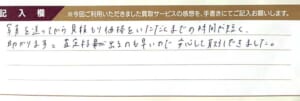 記入欄 ※今回ご利用いただきました買取サービスの感想を、手書きにてご記入お願いします。
写真を送ってから見積もり価格をいただくまでの時間が短く、
助かります。査定結果が出るのも早いので安心して取引できました。